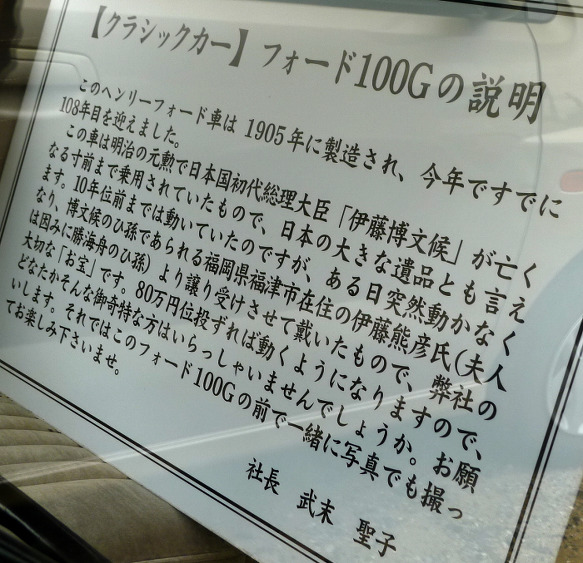 【クラシックカー】フォード100Gの説明
このヘンリーフォード車は 1905年に製造され、今年ですでに
108年目を迎えました。
この車は明治の元勲で日本国初代総理大臣「伊藤博文候」が亡く
なる寸前まで乗用されていたもので、日本の大きな遺品とも言え
ます。10年位前までは動いていたのですが、ある日突然動かなく
なり、博文候のひ孫であられる福岡県福津市在住の伊藤能彦氏(夫人
は因みに勝海舟のひ孫)より譲り受けさせて戴いたもので、弊社の
大切な「お宝」です。80万円位投ずれば動くようになりますので、
どなたかそんな御奇特な方はいらっしゃいませんでしょうか。お願
いします。それではこのフォード100Gの前で一緒に写真でも撮っ
てお楽しみ下さいませ。
社長 武末 聖子